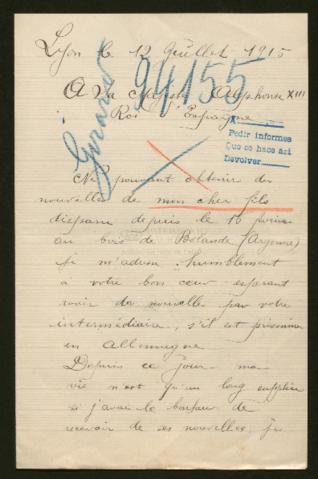 Lyon le 12 Juillet 1915
94155
A Sa Majesté Alphonse XIII
Roi d'Espagne
Girard
Pedir informes
Que se hace así
Devolver
Ne pouvant obtenir des
nouvelles de mon cher fils
disparu depuis le 10
au bois de Bolande (Argonne)
Je m'adresse humblement
à votre bon cœur espérant
avoir des nouvelles par votre
intermédiaire, s'il est prisonnier
en Allemagne
Depuis ce jour ma
vie n'est qu'un long supplice
si j'avais le bonheur de
recevoir de ses nouvelles, je